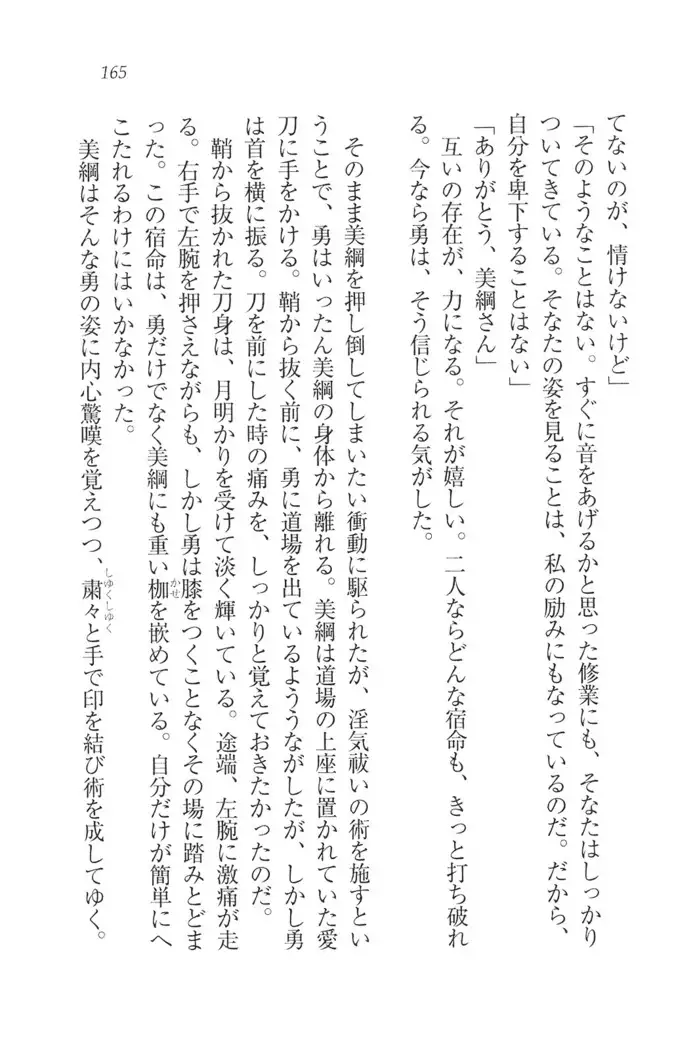 165
てないのが、情けないけど」
「そのようなことはない。すぐに音をあげるかと思った修業にも、そなたはしっかり
ついてきている。そなたの姿を見ることは、私の励みにもなっているのだ。だから、
自分を卑下することはない」
「ありがとう、美綱さん」
互いの存在が、力になる。それが嬉しい。二人ならどんな宿命も、きっと打ち破れ
る。今なら勇は、そう信じられる気がした。
そのまま美綱を押し倒してしまいたい衝動に駆られたが、淫気祓いの術を施すとい
うことで、勇はいったん美綱の身体から離れる。美綱は道場の上座に置かれていた愛
刀に手をかける。鞘から抜く前に、勇に道場を出ているよううながしたが、しかし勇
は首を横に振る。刀を前にした時の痛みを、しっかりと覚えておきたかったのだ。
鞘から抜かれた刀身は、月明かりを受けて淡く輝いている。途端、左腕に激痛が走
る。右手で左腕を押さえながらも、しかし勇は膝をつくことなくその場に踏みとどま
った。この宿命は、勇だけでなく美綱にも重い枷かせを嵌めている。自分だけが簡単にへ
こたれるわけにはいかなかった。
美綱はそんな勇の姿に内心驚嘆を覚えつつ、粛々しゅくしゅくと手で印を結び術を成してゆく。